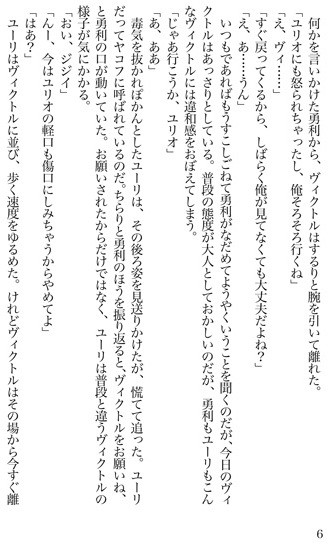 何かを言いかけた勇利から、ヴィクトルはするりと腕を引いて離れた。
「ユリオにも怒られちゃったし、俺そろそろ行くね」
「え、ヴィ……」
「すぐ戻ってくるから、しばらく俺が見てなくても大丈夫だよね？」
「え、あ……うん」
いつもであればもうすこしごねて勇利がなだめてようやくいうことを聞くのだが、今日のヴィ
クトルはあっさりとしている。普段の態度が大人としておかしいのだが、勇利もユーリもこん
なヴィクトルには違和感をおぼえてしまう。
「じゃあ行こうか、ユリオ」
「あ、ああ」
毒気を抜かれぽかんとしたユーリは、その後ろ姿を見送りかけたが、慌てて追った。ユーリ
だってヤコフに呼ばれているのだ。ちらりと勇利のほうを振り返ると、ヴィクトルをお願いね、
と勇利の口が動いていた。お願いされたからだけではなく、ユーリは普段と違うヴィクトルの
様子が気にかかる。
「おい、ジジイ」
「んー、今はユリオの軽口も傷口にしみちゃうからやめてよ」
「はあ？」
ユーリはヴィクトルに並び、歩く速度をゆるめた。けれどヴィクトルはその場から今すぐ離
6